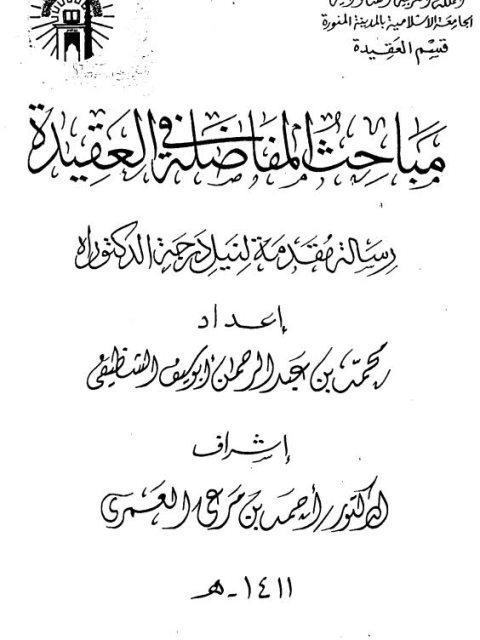 المملكة العربية السعودية
الجامعة الإسلامية بالمدينة المنورة
قسم العقيدة
مباحث المفاضلة في العقيدة
رسالة مقدمة لنيل درجة الدكتوراه
إعداد
محمد بن عبد الرحمن أبو سيف الشظيفي
إشراف
الدكتور / أحمد بن مرعي العمري
١٤١١ - هـ